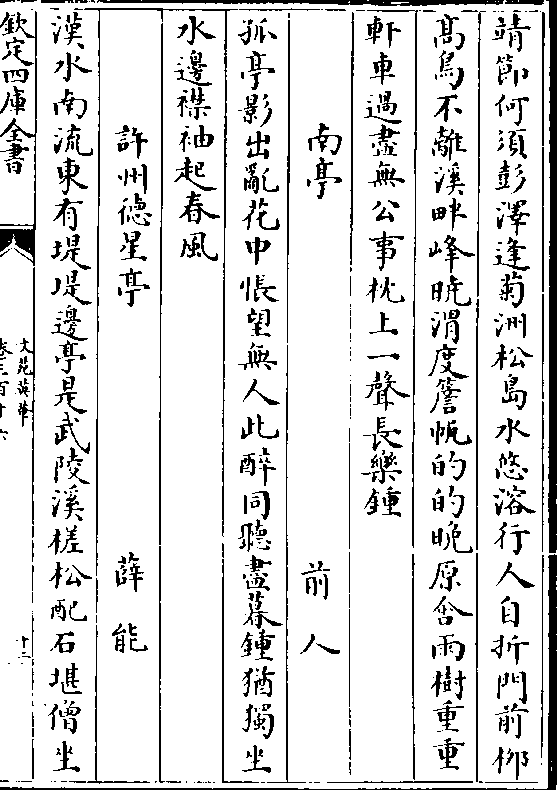 靖節何須彭澤逢菊洲松島水悠溶行人自折門前栁
髙鳥不離溪畔峰曉渭度簷帆的的晚原含雨樹重重
軒車過盡無公事枕上一聲長樂鍾
南亭　前人
孤亭影出亂花中悵望無人此醉同聽盡暮鍾猶獨坐
水邊襟袖起春風
許州徳星亭　薛能
漢水南流東有堤堤邊亭是武陵溪槎松配石堪僧坐
欽定四庫全書
文苑英華
卷三百十六
十二